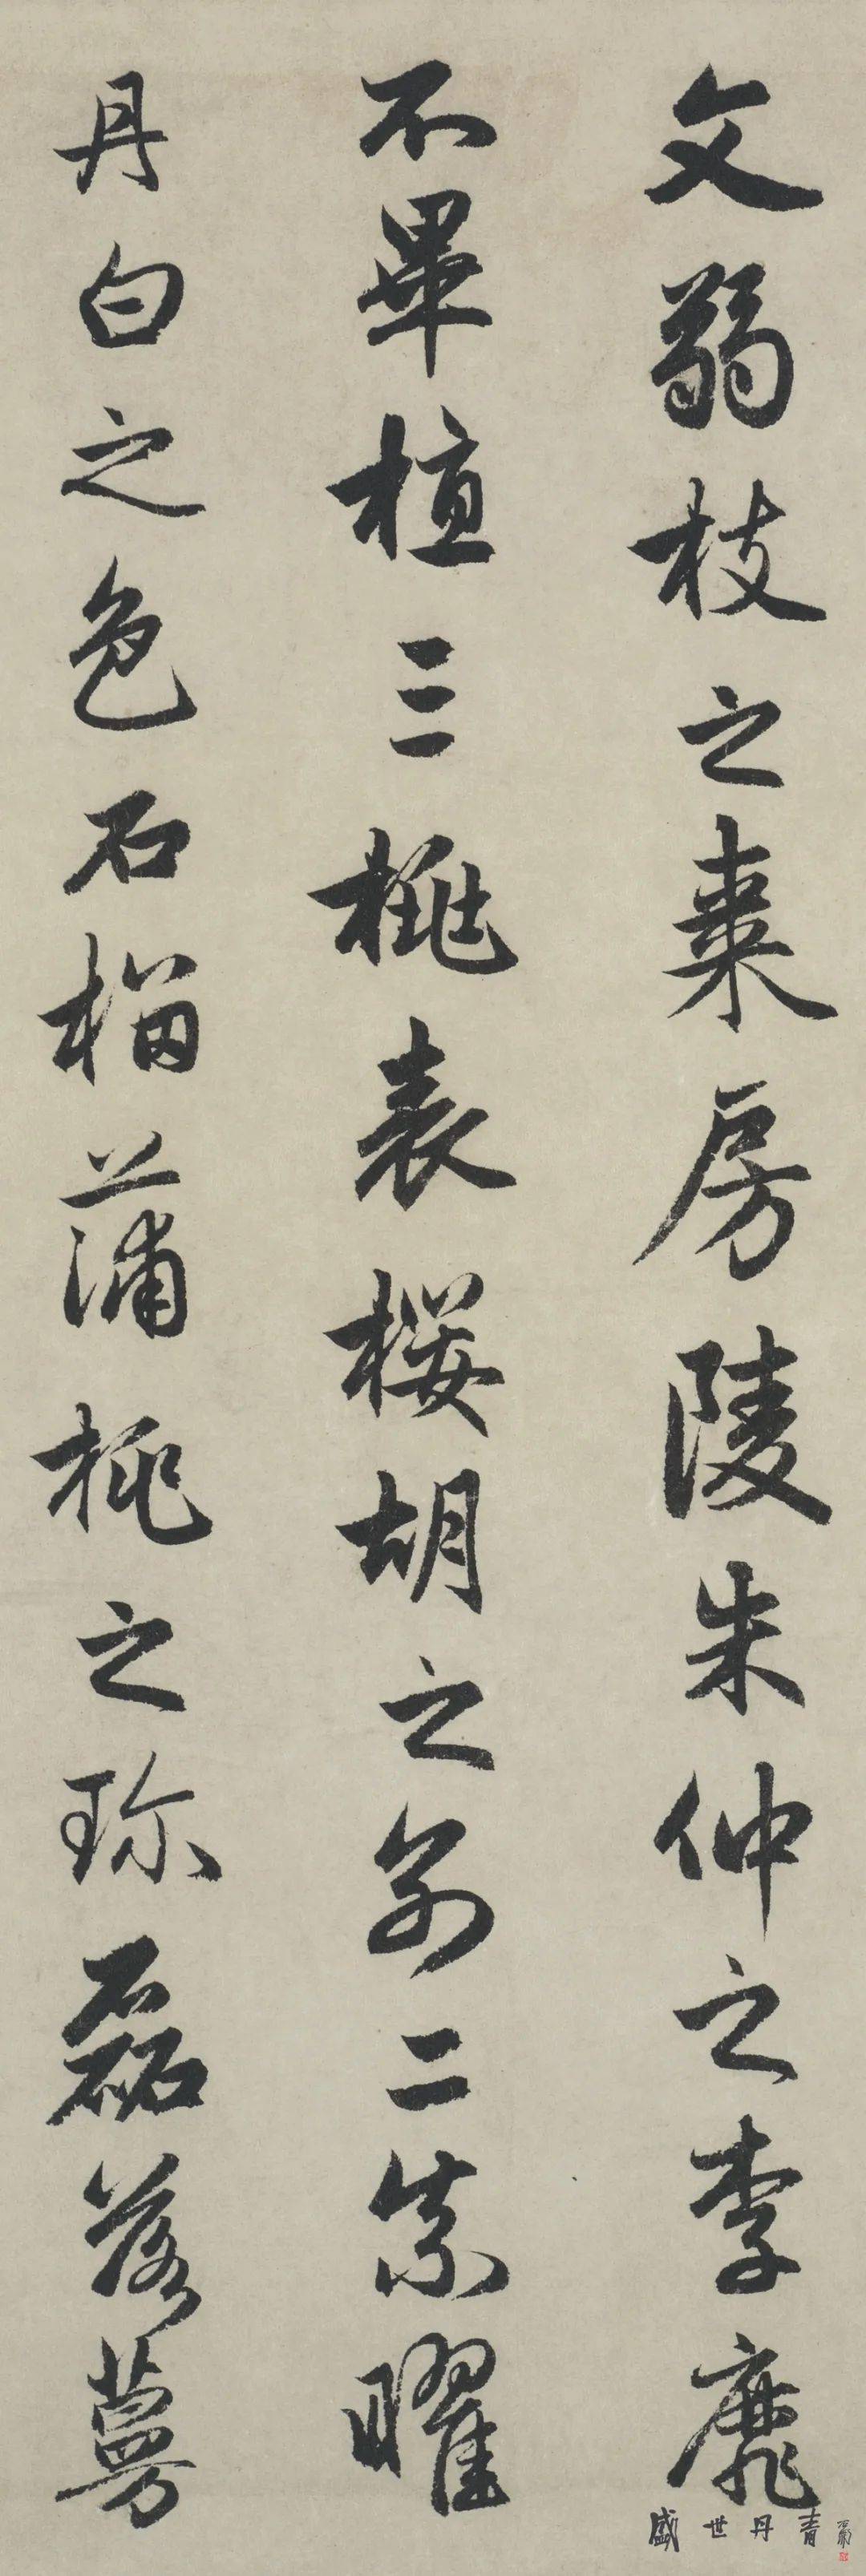 文弱枝之棗房陵朱仲之李靡
不畢植三桃表櫻胡之別二柰曜
丹白之色石榴蒲桃之珎磊落蔓
盛世丹青